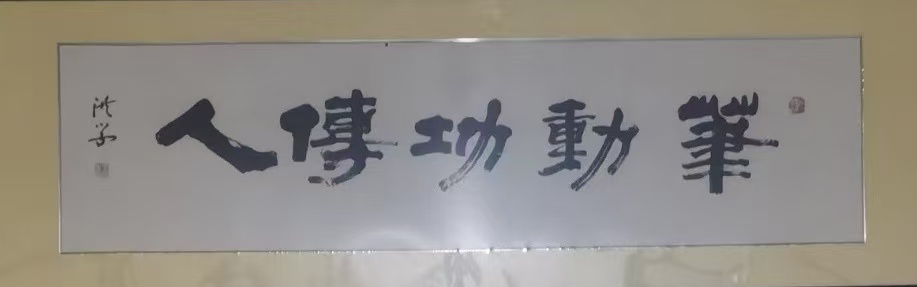 筆動功傳人